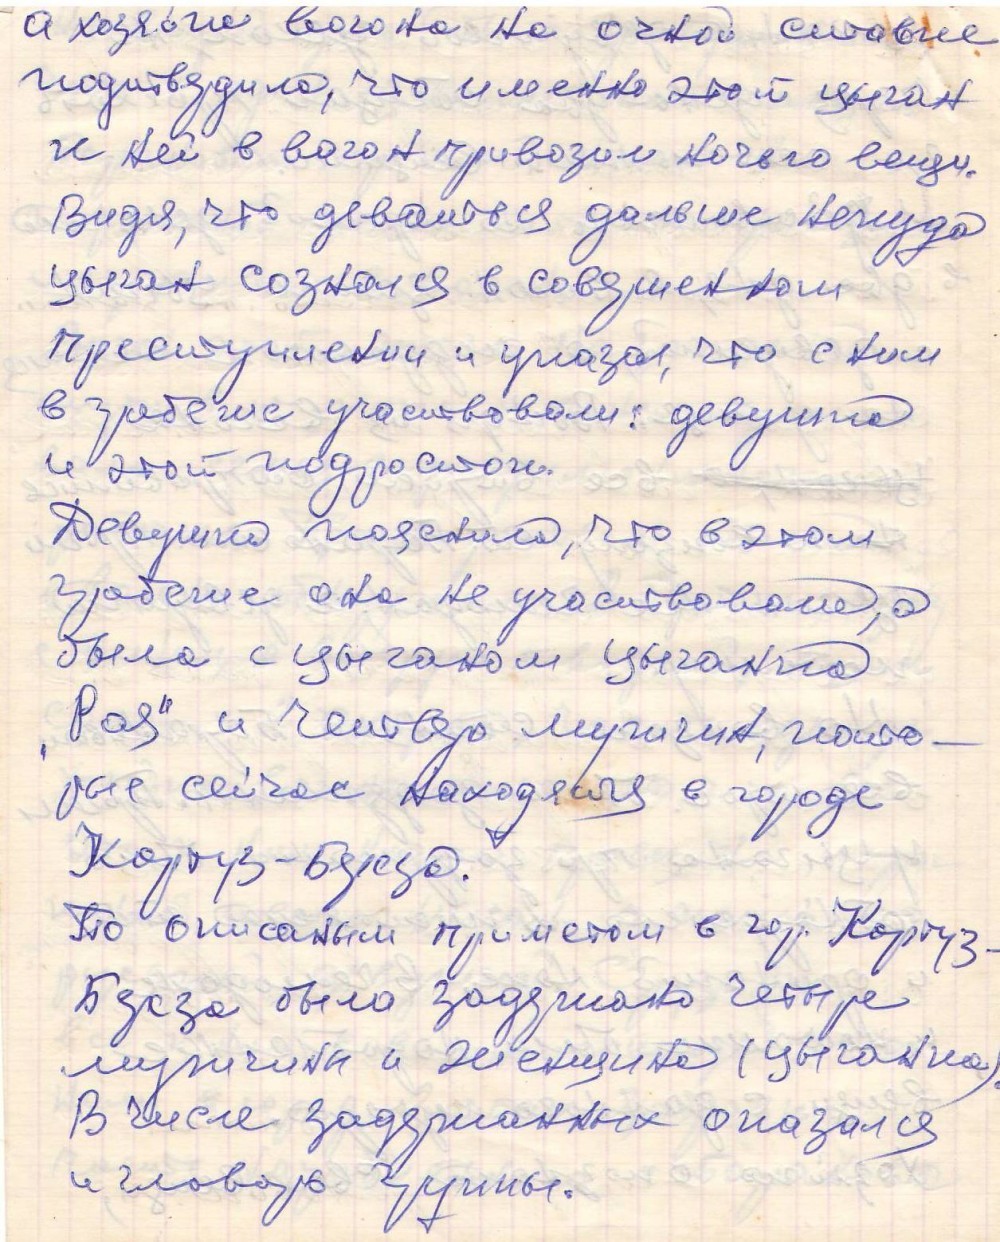 а хозяйка вагона на очной ставке
подтвердила, что именно этот цыган
к ней в вагон привозил ночью вещи.
Видя, что деваться дальше некуда
цыган сознался в совершенном
преступлении и указал, что с ним
в грабеже участвовали: девушка
и этот подросток.
Девушка пояснила, что в этом
грабеже она не участвовала, а
была с цыганом цыганка
„Рая" и четверо мужчин, кото-
рые сейчас находятся в городе
Картуз-Береза.
По описаным приметам в гор. Картуз-
Береза было задержано четыре
мужчины и женщина (цыганка).
В числе задержанных оказался
и главарь группы.